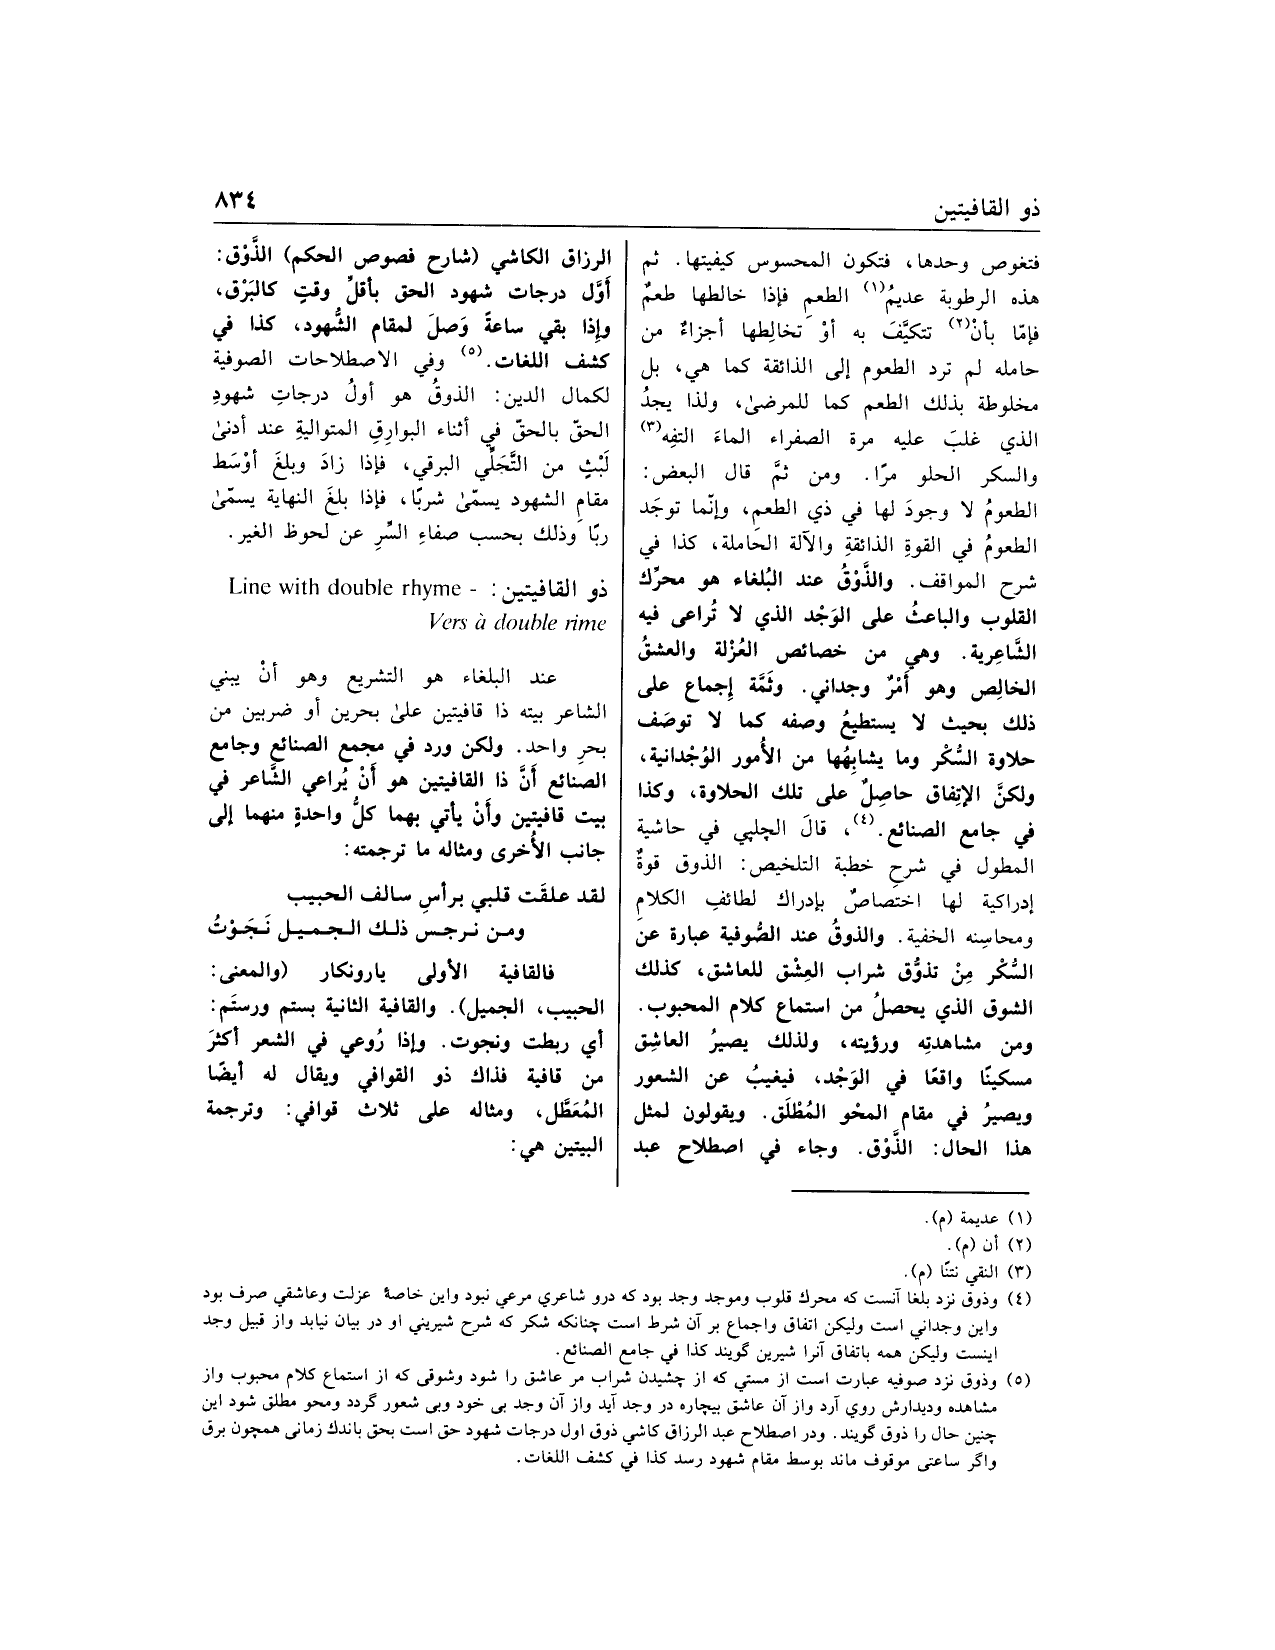 ذو القافيتين
٨٣٤
فتغوص وحدها، فتكون المحسوس كيفيتها. ثم
هذه الرطوبة عديمُ(١) الطعمِ فإذا خالطها طعمٌ
فإمّا بأنْ(٢) تتكيَّفَ به أوْ تخالِطها أجزاءٌ من
حامله لم ترد الطعوم إلى الذائقة كما هي، بل
مخلوطة بذلك الطعم كما للمرضىٰ، ولذا يجدُ
الذي غلبَ عليه مرة الصفراء الماءَ التفِه(٣)
والسكر الحلو مرّا. ومن ثمَّ قال البعض:
الطعومُ لا وجودَ لها في ذي الطعمِ، وإنّما توجَد
الطعومُ في القوةِ الذائقةِ والآلة الحَاملة، كذا في
شرح المواقف. والذَّوْقُ عند البُلغاء هو محرِّك
القلوب والباعثُ على الوَجْد الذي لا تُراعى فيه
الشَّاعِرية. وهي من خصائص العُزْلة والعشقُ
الخالِص وهو أَمْرٌ وجداني. وثَمَّة إِجماع على
ذلك بحيث لا يستطيعُ وصفه كما لا توصَف
حلاوة السُّكْر وما يشابِهُها من الأمور الوُجْدانية،
ولكنَّ الإتِفاق حاصِلٌ على تلك الحلاوة، وكذا
في جامع الصنائع.(٤)، قالَ الچلپي في حاشية
المطول في شرحِ خطبة التلخيص: الذوق قوةٌ
إدراكية لها اختصاصٌ بإدراك لطائفِ الكلامِ
ومحاسِنه الخفية. والذوقُ عند الصُّوفية عبارة عن
السُّكْر مِنْ تذوُّق شراب العِشْق للعاشق، كذلك
الشوق الذي يحصلُ من استماع كلام المحبوب.
ومن مشاهدتِه ورؤيته، ولذلك يصيرُ العاشِق
مسكينًا واقعًا في الوَجْد، فيغيبُ عن الشعور
ويصيرُ في مقام المحْو المُطْلَق. ويقولون لمثل
هذا الحال: الذَّوْق. وجاء في اصطلاح عبد
الرزاق الكاشي (شارح فصوص الحكم) الذَّوْق:
أوَّل درجات شهود الحق بأقلِّ وقتٍ كالبَرْق،
وإذا بقي ساعةً وَصلَ لمقام الشُّهود، كذا في
كشف اللغات.(٥) وفي الاصطلاحات الصوفية
لكمال الدين: الذوقُ هو أولُ درجاتِ شهودِ
الحقّ بالحقّ في أثناء البوارِقِ المتواليةِ عند أدنىٰ
لَبْثٍ من التَّجَلِّي البرقي، فإذا زادَ وبلغَ أوْسَط
مقامِ الشهود يسمّىٰ شربًا، فإذا بلغَ النهاية يسمّىٰ
ربًا وذلك بحسب صفاءِ السِّرِ عن لحوظ الغير.
ذو القافيتين: Line with double rhyme -
Vers à double rime
عند البلغاء هو التشريع وهو أنْ يبني
الشاعر بيته ذا قافيتين علىٰ بحرين أو ضربين من
بحرِ واحد. ولكن ورد في مجمع الصنائع وجامع
الصنائع أَنَّ ذا القافيتين هو أَنْ يُراعي الشَّاعر في
بيت قافيتين وأَنْ يأتي بهما كلُّ واحدةٍ منهما إلى
جانب الأُخرى ومثاله ما ترجمته:
لقد علقَت قلبي برأسِ سالف الحبيب
ومن نرجس ذلك الجميل نَجَوْتُ
فالقافية الأولى يارونكار (والمعنى:
الحبيب، الجميل). والقافية الثانية بستم ورستَم:
أي ربطت ونجوت. وإذا رُوعي في الشعر أكثَرَ
من قافية فذاك ذو القوافي ويقال له أيضًا
المُعَطَّل، ومثاله على ثلاث قوافي: وترجمة
البيتين هي:
(١) عديمة (م).
(٢) أن (م).
(٣) النقي نتنًا (م).
(٤) وذوق نزد بلغا آنست كه محرك قلوب وموجد وجد بود كه درو شاعري مرعي نبود واين خاصهٔ عزلت وعاشقي صرف بود
واين وجداني است وليكن اتفاق واجماع بر آن شرط است چنانكه شكر كه شرح شيريني او در بيان نيايد واز قبيل وجد
اينست وليكن همه باتفاق آنرا شيرين گويند كذا في جامع الصنائع.
(٥) وذوق نزد صوفيه عبارت است از مستي كه از چشيدن شراب مر عاشق را شود وشوقى كه از استماع كلام محبوب واز
مشاهده وديدارش روي آرد واز آن عاشق بيچاره در وجد آيد واز آن وجد بى خود وبى شعور گردد ومحو مطلق شود اين
چنين حال را ذوق گويند. ودر اصطلاح عبد الرزاق كاشي ذوق اول درجات شهود حق است بحق باندك زمانى همچون برق
واگر ساعتى موقوف ماند بوسط مقام شهود رسد كذا في كشف اللغات.